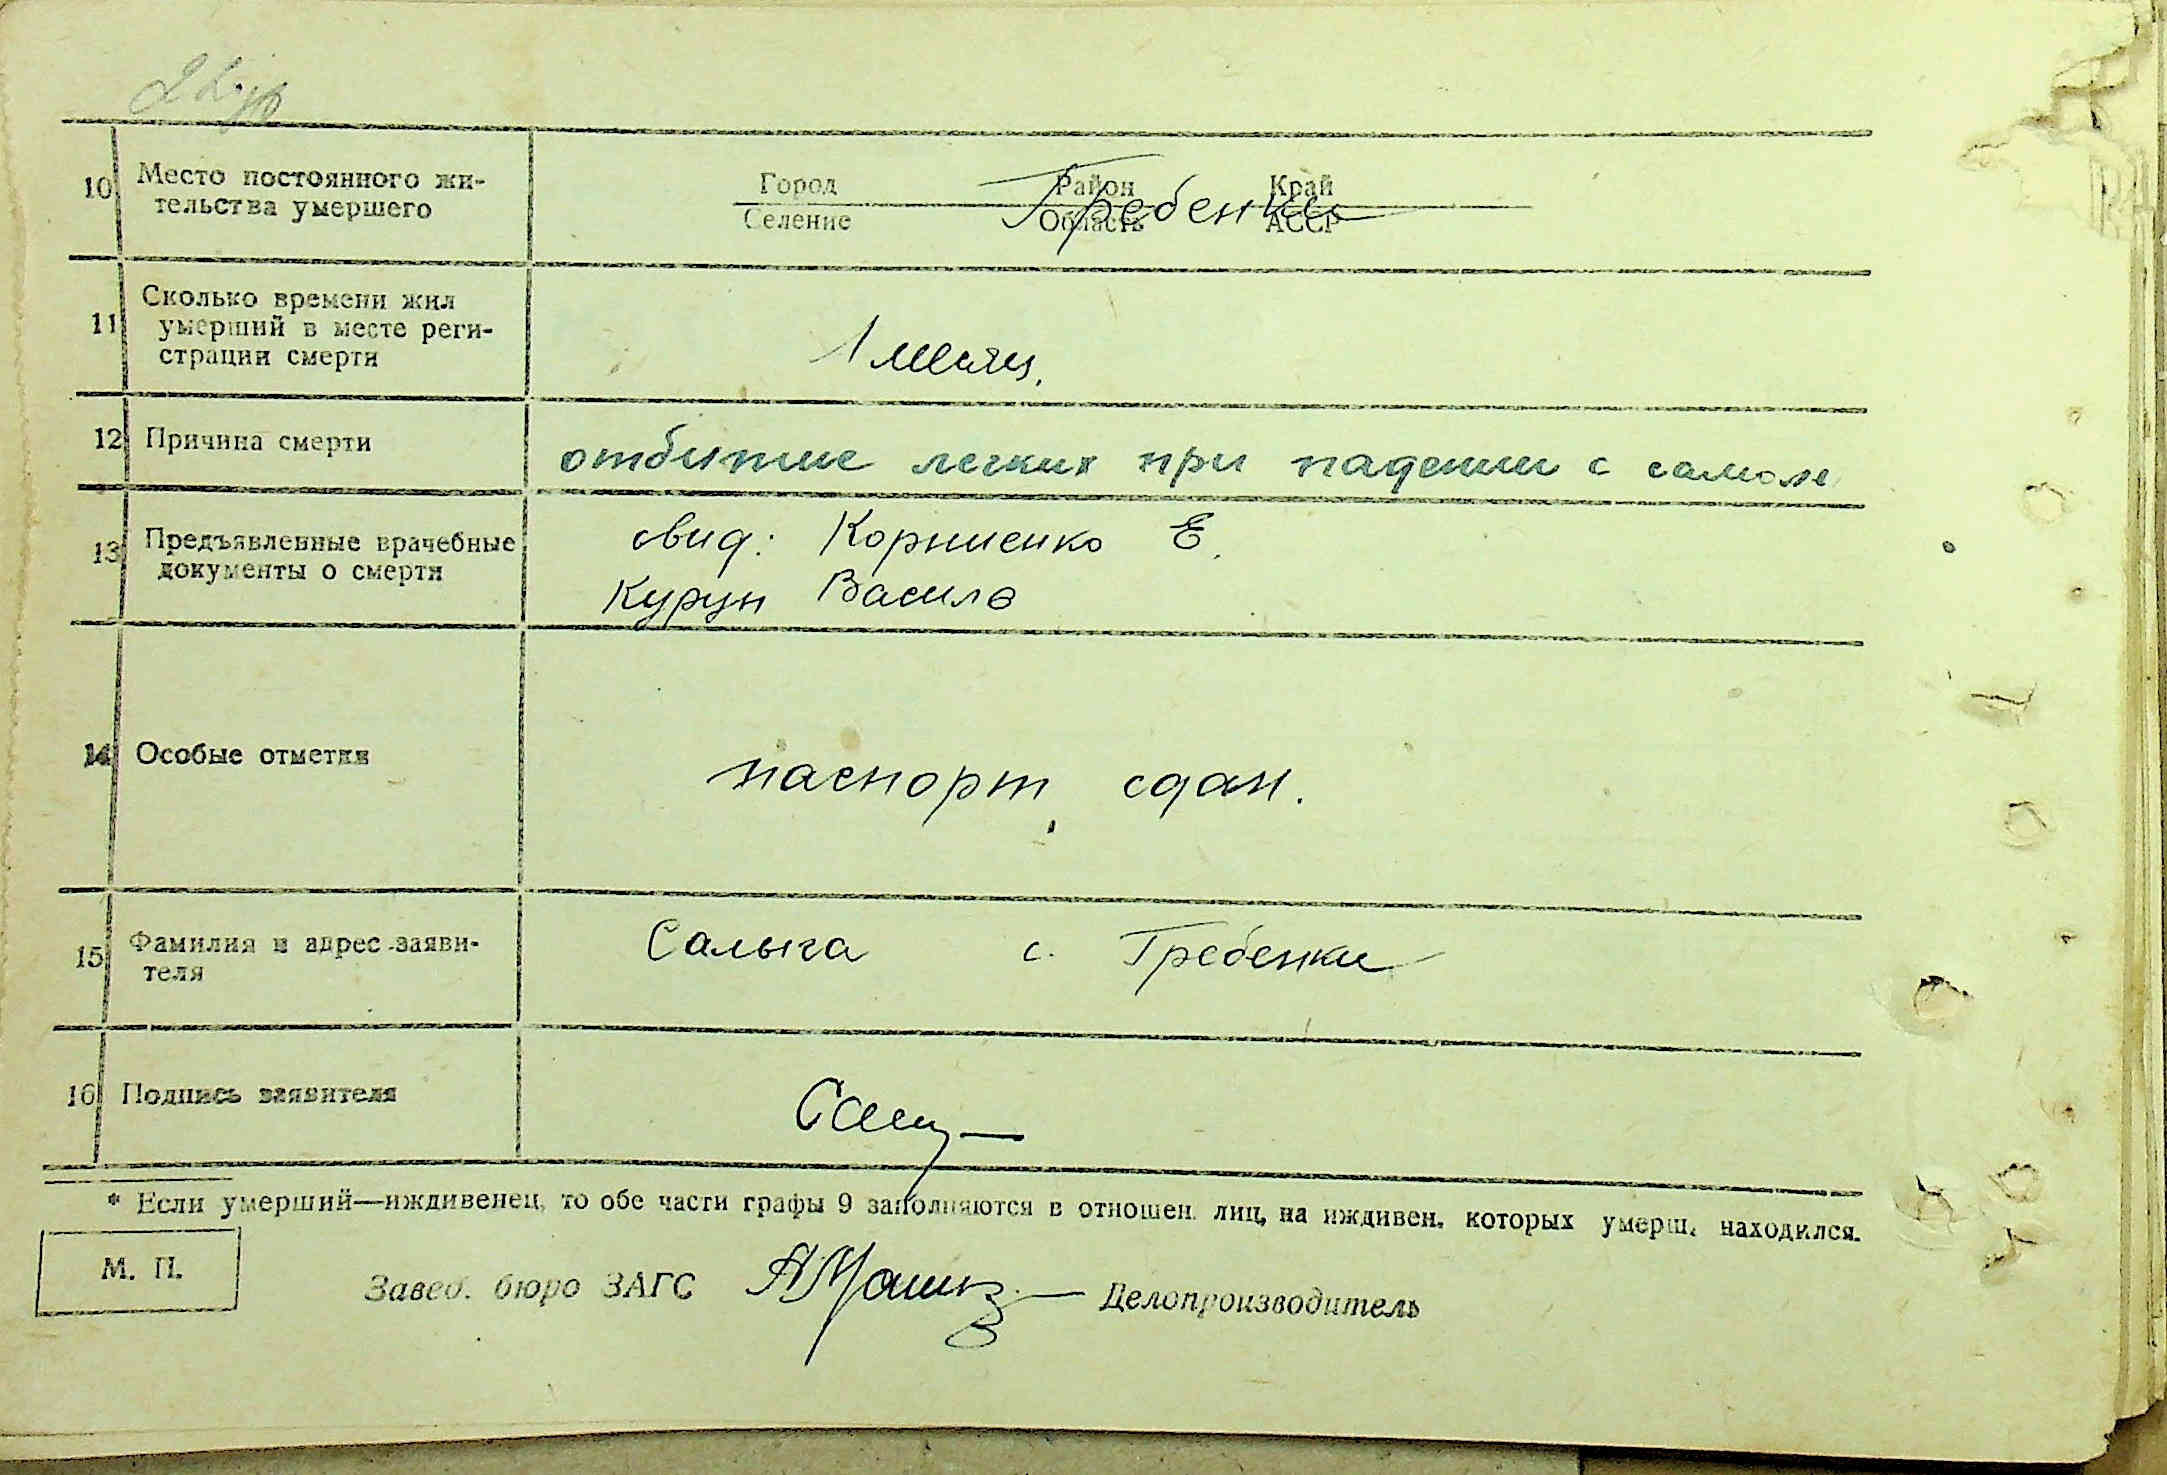 10 Место постоянного жи-
тельства умершего
Город Район Край
Селение Область АССР
Гребенки
11 Сколько времени жил
умерший в месте реги-
страции смерти
1 месяц.
12 Причина смерти
отбитие легких при падении с самоле
13 Предъявленные врачебные
документы о смерти
свид: Корниенко Е.
Курун Василь
14 Особые отметки
паспорт сдан.
15 Фамилия и адрес заяви-
теля
Салыга с. Гребенки
16 Подпись заявителя
* Если умерший—иждивенец, то обе части графы 9 заполняются в отношен. лиц, на иждивен. которых умерш. находился.
М. П.
Завед. бюро ЗАГС Делопроизводитель